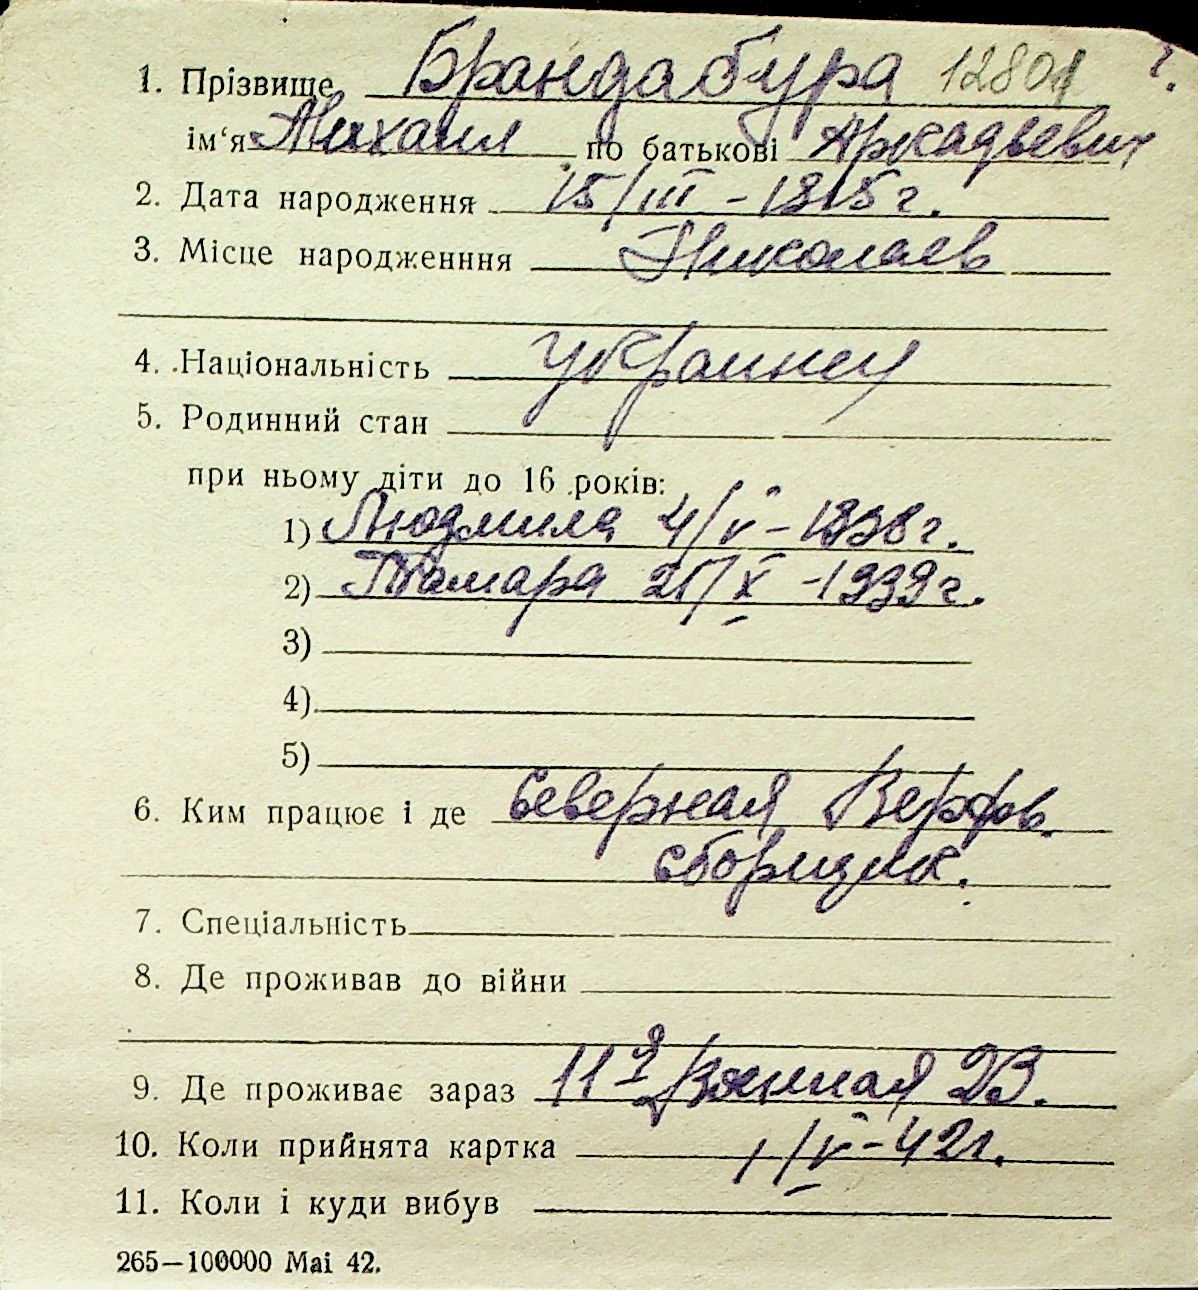 1. Прізвище Брандабура 12801 г.
ім‘я Михаил по батькові Аркадьевич
2. Дата народження 15/III – 1915 г.
3. Місце народженння Николаев
4. Національність украинец
5. Родинний стан
при ньому діти до 16 років:
1) Людмила 4/V – 1938 г.
2) Тамара 21/X – 1939 г.
3)
4)
5)
6. Ким працює і де Северная Верфь.
сборщик.
7. Спеціальність
8. Де проживав до війни
9. Де проживає зараз 11я Военная 23.
10. Коли прийнята картка 1/V – 42 г.
11. Коли і куди вибув
265—100000 Mai 42.